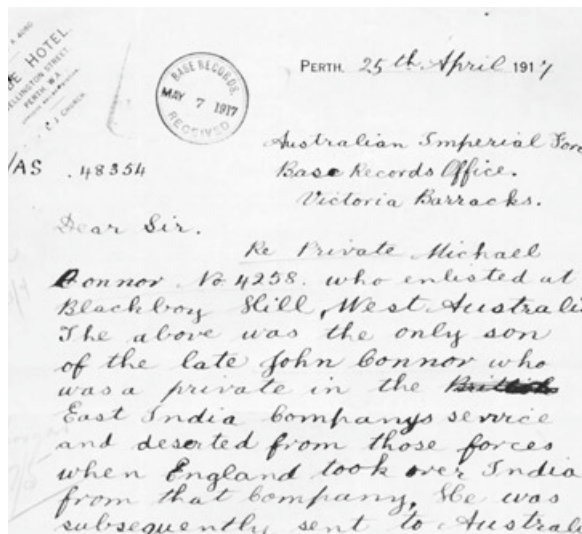 A. 4090
HOTEL.
WELLINGTON STREET
PERTH, W.A.
C. J. CHURCH
BASE RECORDS.
MAY 7 1917
RECEIVED
PERTH. 25th April 1917
Australian Imperial Forc
Base Records Office.
Victoria Barracks.
/AS .48354
Dear Sir.
Re Private Michael
Connor No 4258. who enlisted at
Blackboy Hill, West Australi
The above was the only son
of the late John Connor who
was a private in the British
East India Companys service
and deserted from those forces
when England took over India
from that Company, He was
subsequently sent to Australi